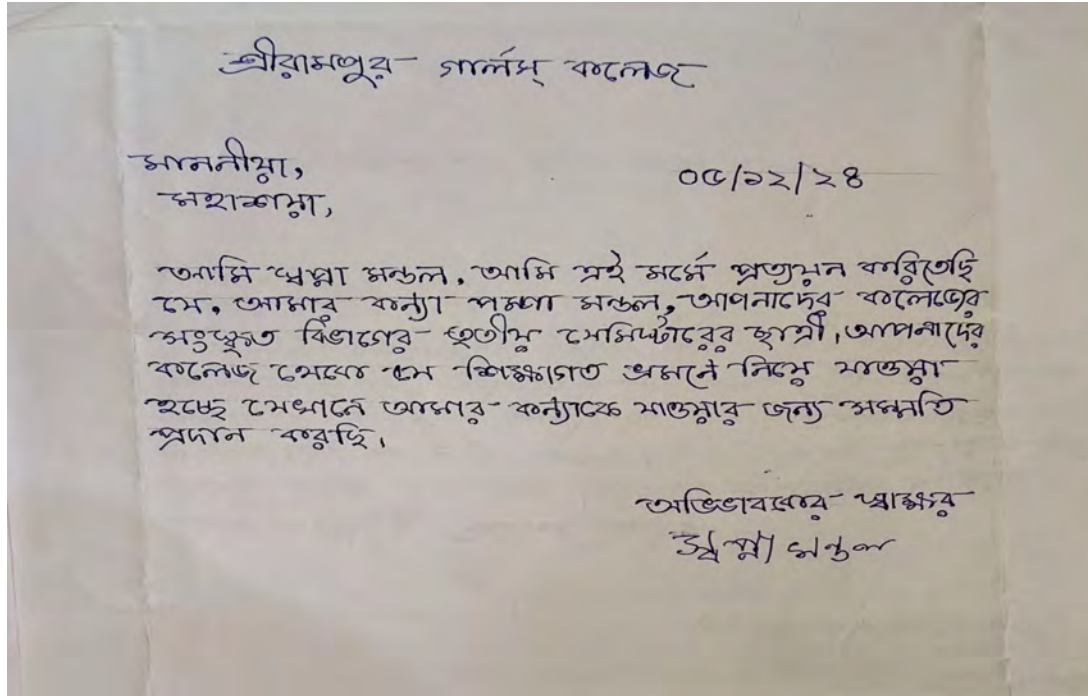 শ্রীরামপুর গার্লস্ কলেজ
মাননীয়া,
০৫/১২/২৪
মহাশয়া,
আমি স্বপ্না মন্ডল, আমি এই মর্মে প্রত্যয়ন করিতেছি
যে, আমার কন্যা পম্পা মন্ডল, আপনাদের কলেজের
সংস্কৃত বিভাগের তৃতীয় সেমিস্টারের ছাত্রী, আপনাদের
কলেজ থেকে যে শিক্ষাগত ভ্রমনে নিয়ে যাওয়া
হচ্ছে সেখানে আমার কন্যাকে যাওয়ার জন্য সম্মতি
প্রদান করছি।
অভিভাবকের স্বাক্ষর
স্বপ্না মন্ডল